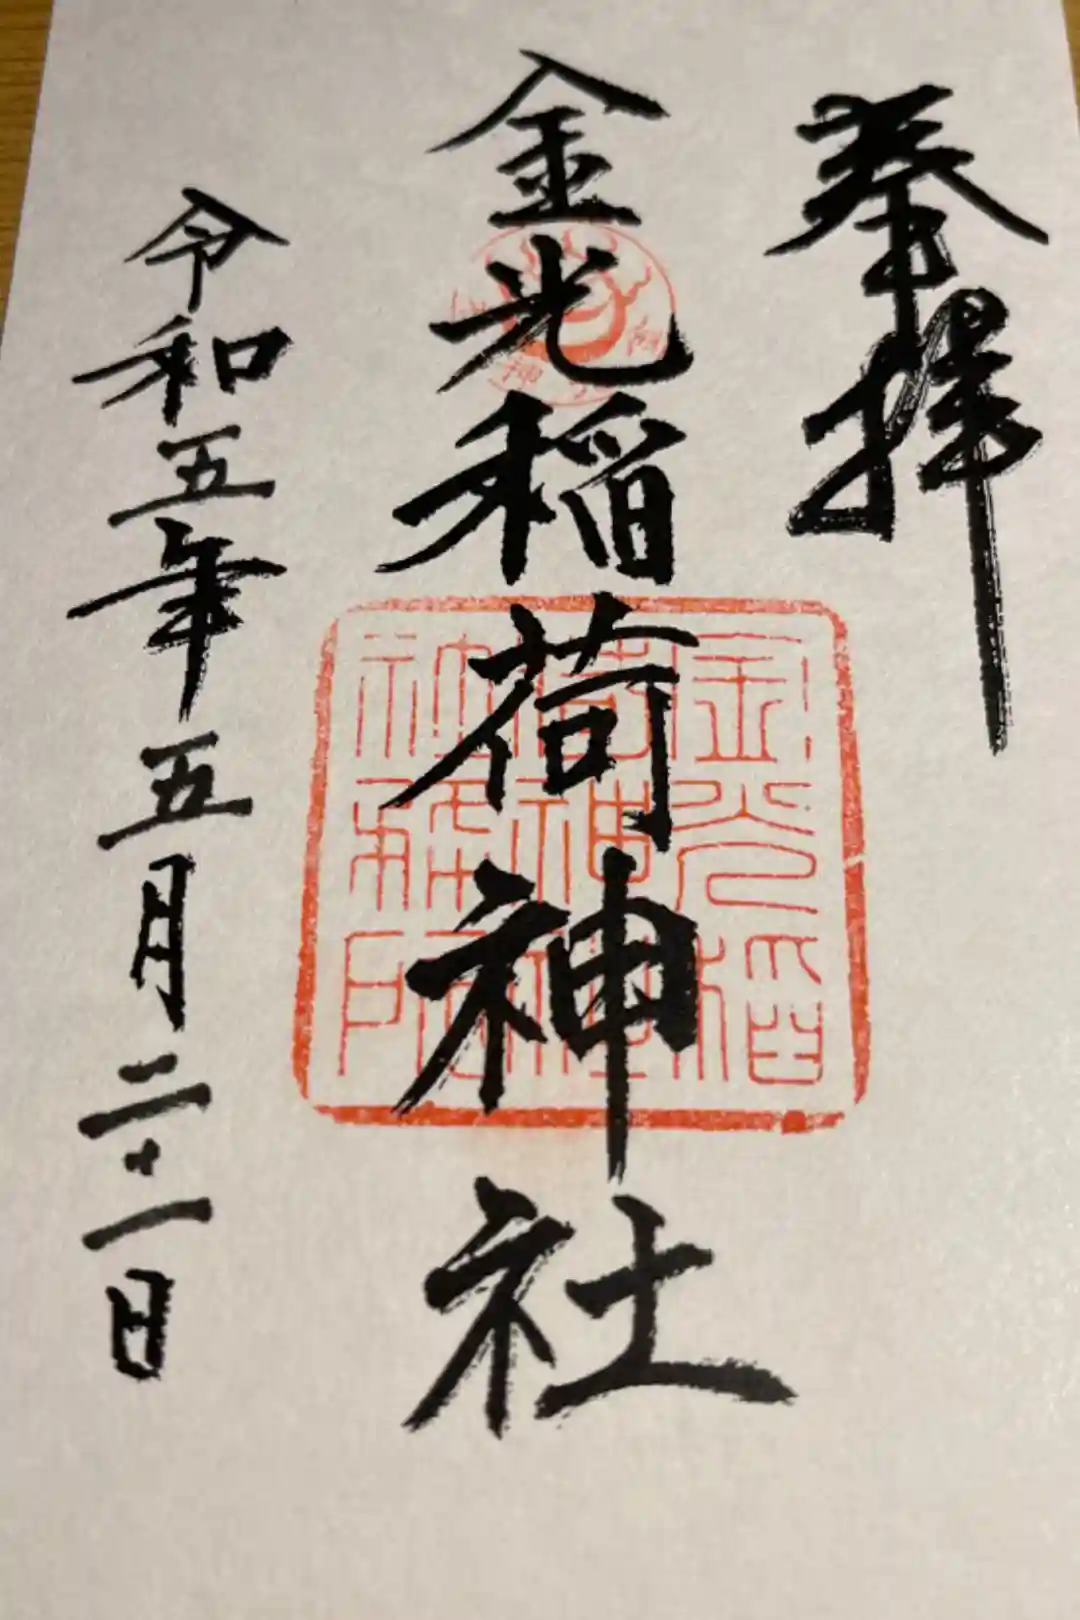 奉拝
金光稲荷神社
金光稲
荷神社
社務所
令和五年五月二十一日